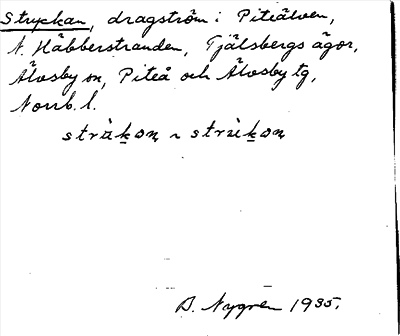 Stryckan, dragström i Piteälven,
N. Häbberstranden, Tjälsbergs ägor,
Älvsby sn, Piteå och Älvsby tg,
Norrb. l.
strùkɔn ~ strùkɔn
B. Nygren 1935.